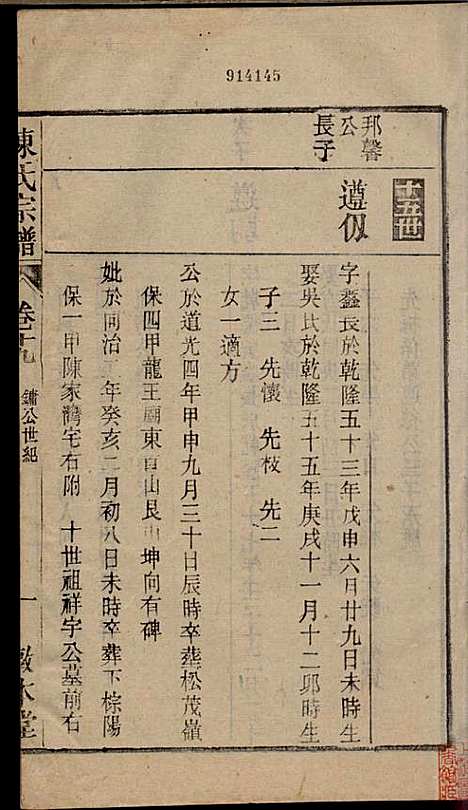 914145
十五世
邦馨
公
長子
遵仭
字鑫長於乾隆五十三年戊申六月廿九日未時生
娶吳氏於乾隆五十五年庚戌十一月十二卯時生
子三 先懷 先枝 先二
女一適方
公於道光四年甲申九月三十日辰時卒葬松茂嶺
保四甲龍王廟東首山艮山坤向有碑
妣於同治二年癸亥二月初八日未時卒葬下棕陽
保一甲陳家灣宅右附 十世祖祥宇公墓前右
陳氏宗譜
卷十九
鏞公世紀
一
敬本堂